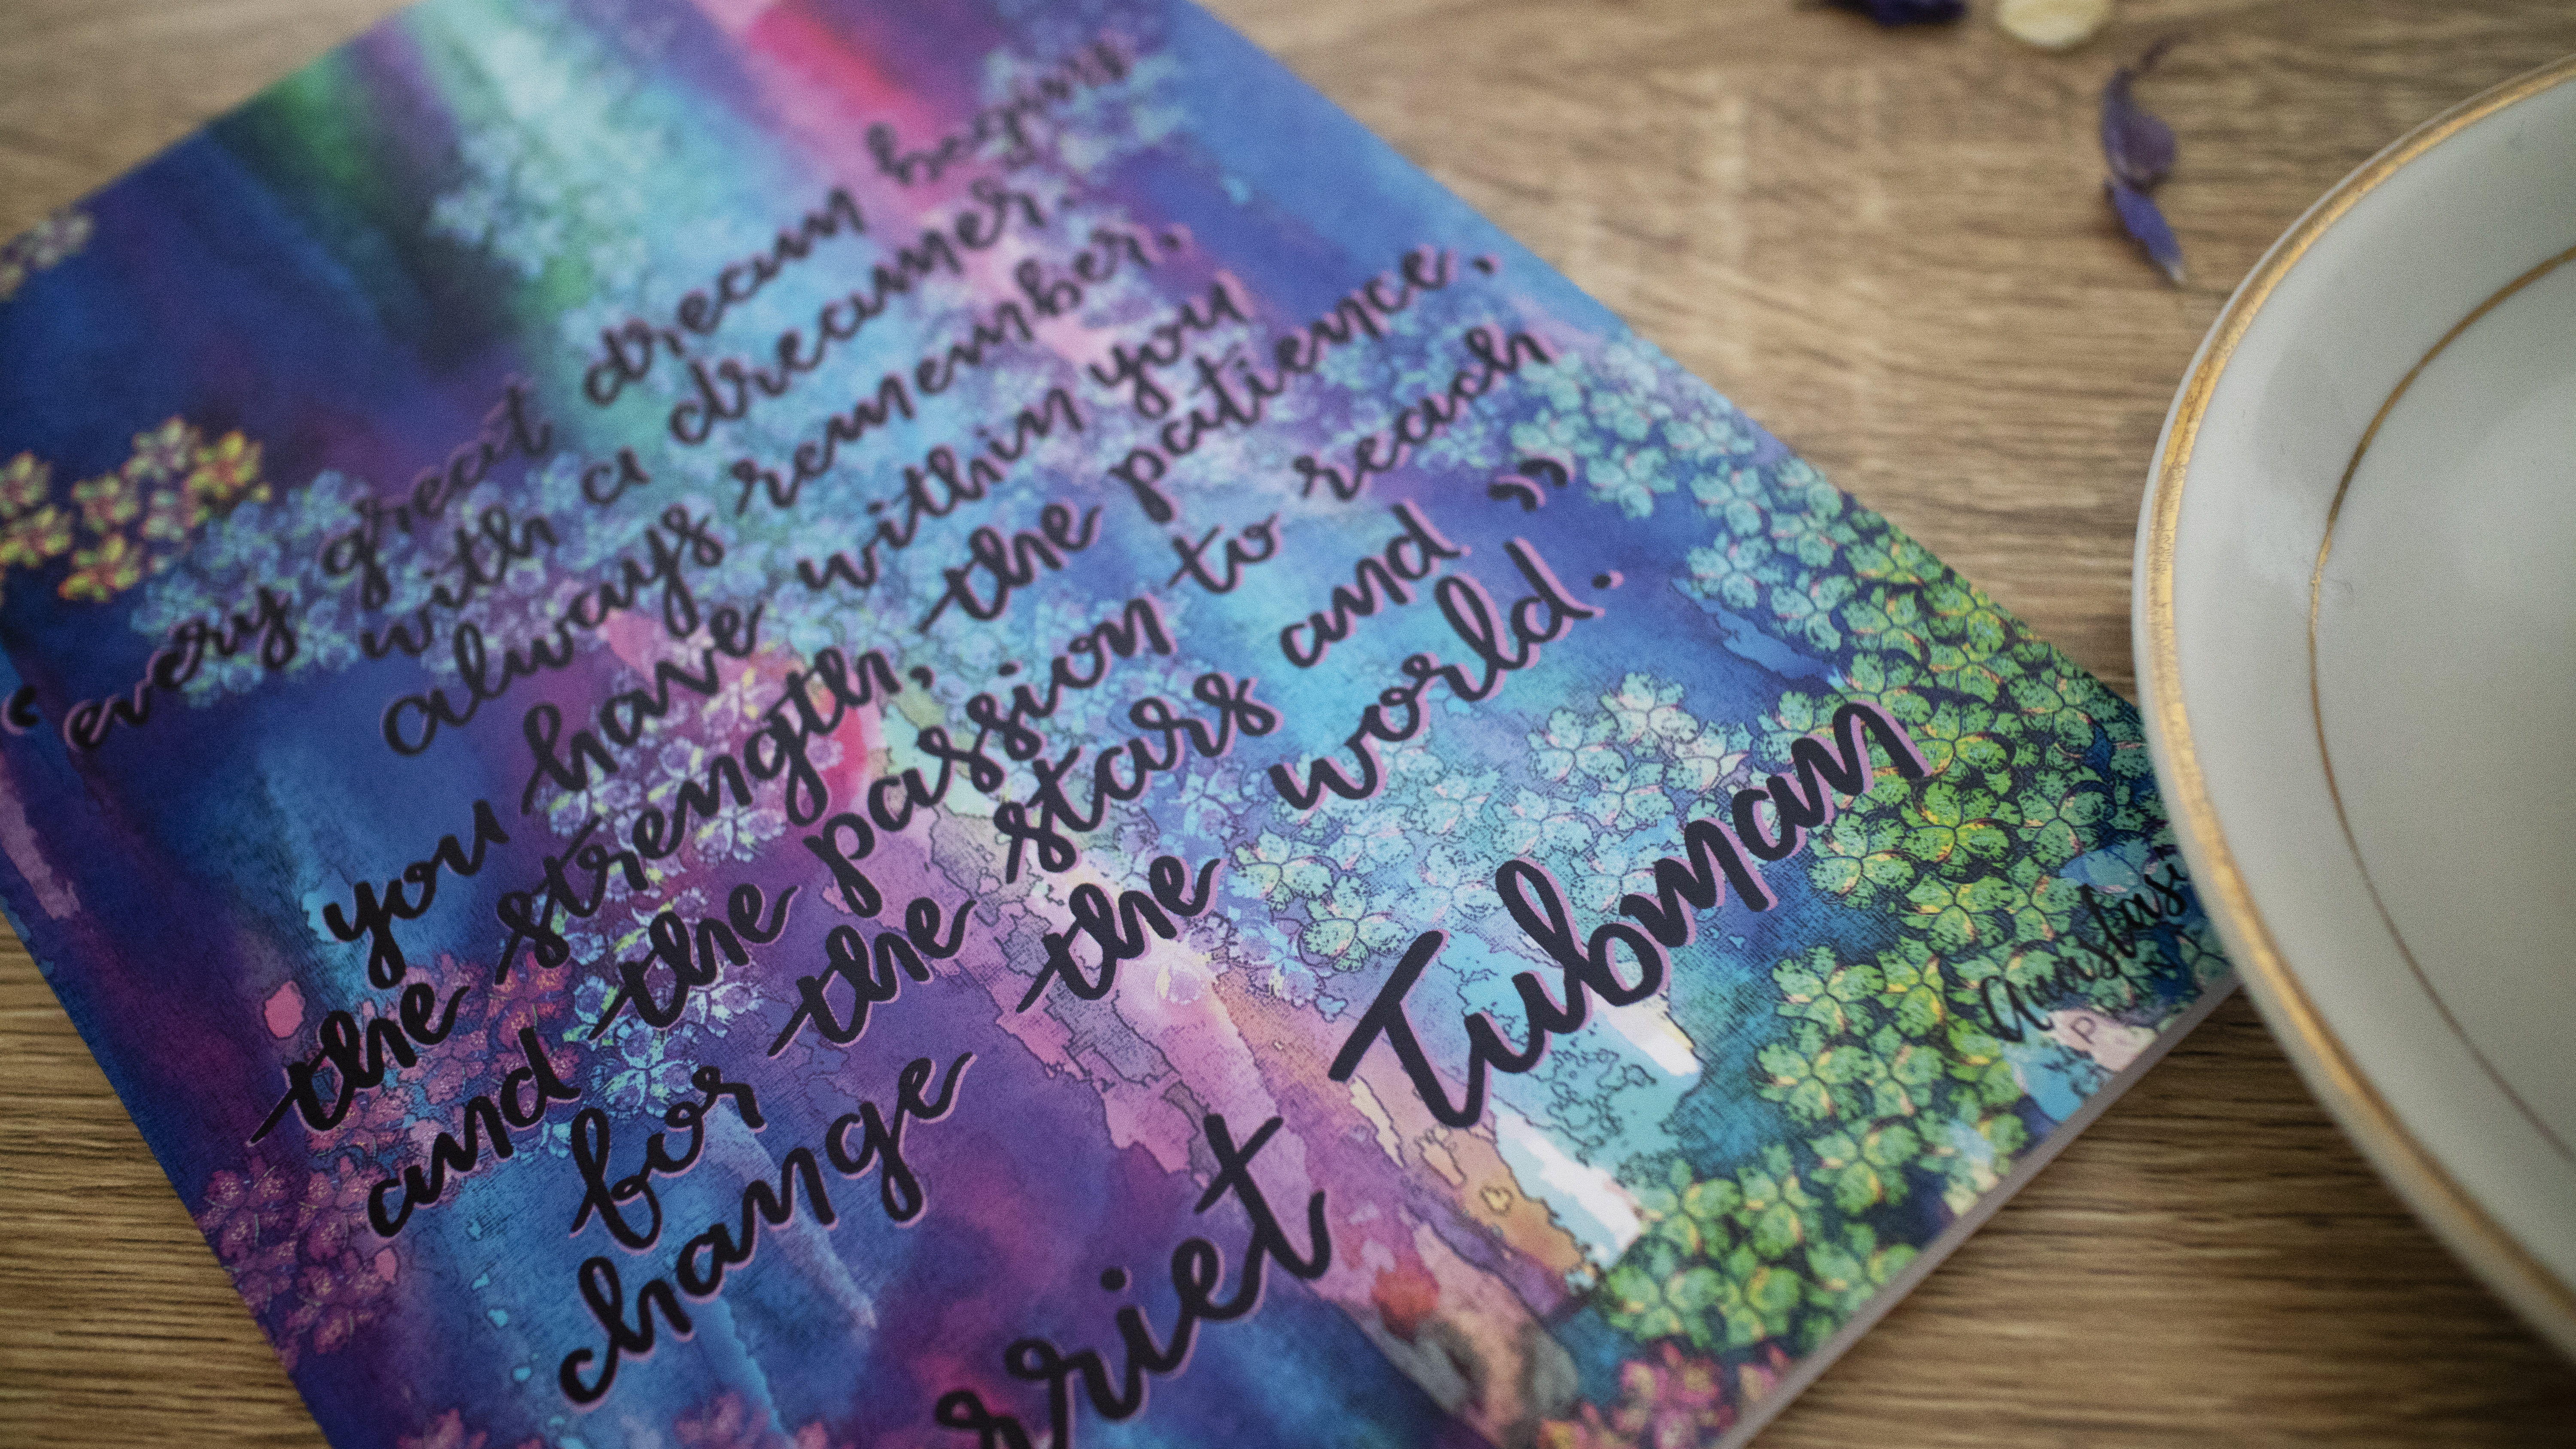 "every great dream begins
with a dreamer.
always remember,
you have within you
the strength, the patience,
and the passion to reach
for the stars and
change the world."
rriet Tubman